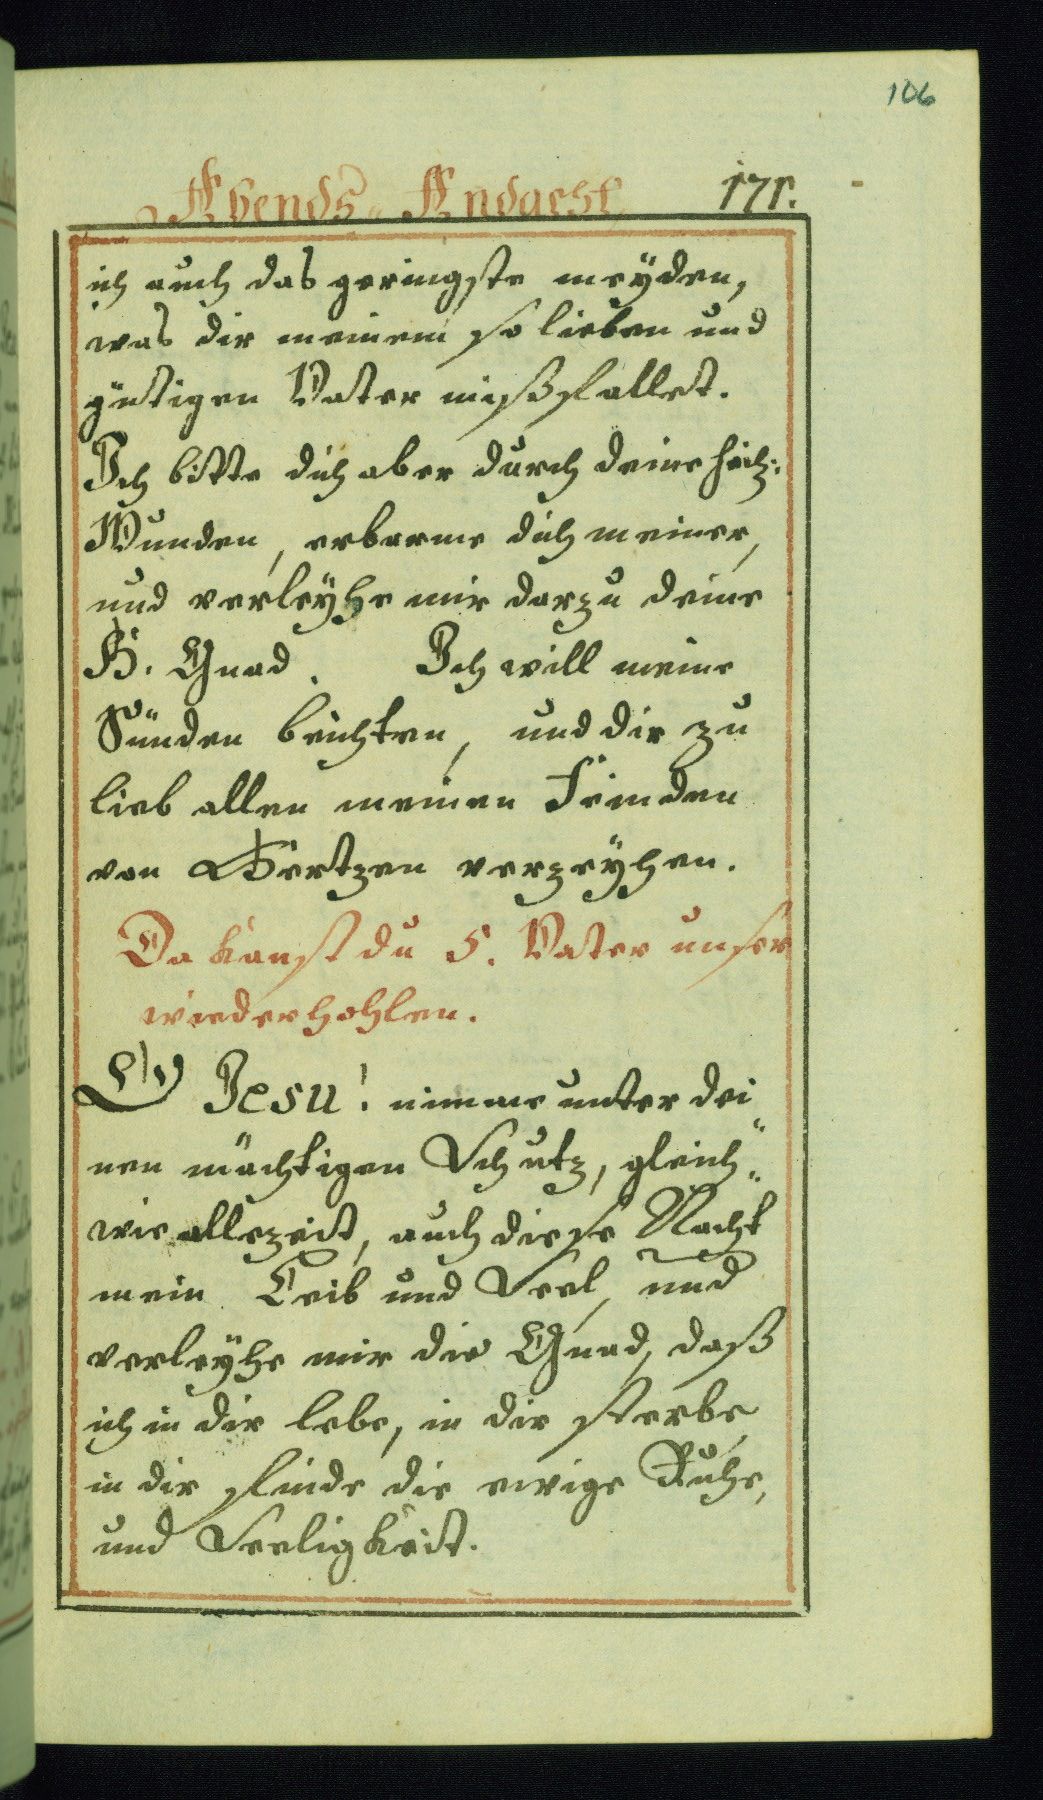 106
Abends-Andacht 171.
ich auch das geringste meyden,
was dir meinem so lieben und
gütigen Vater mißfallet.
Ich bitte dich aber durch deine heil:
Wunden, erbarme dich meiner,
und verleyhe mir darzu deine
H. Gnad. Ich will meine
Sünden beichten, und dir zu
lieb allen meinen Feinden
von Hertzen verzeyhen.
Da kanst du 5. Vater unser
wiederhohlen.
O Jesu! nimme unter dei
nen mächtigen Schutz, gleich„
wie allezeit, auch diese Nacht
mein Leib und Seel, und
verleyhe mir die Gnad, daß
ich in dir lebe, in dir sterbe,
in dir finde die ewige Ruhe,
und Seeligkeit.